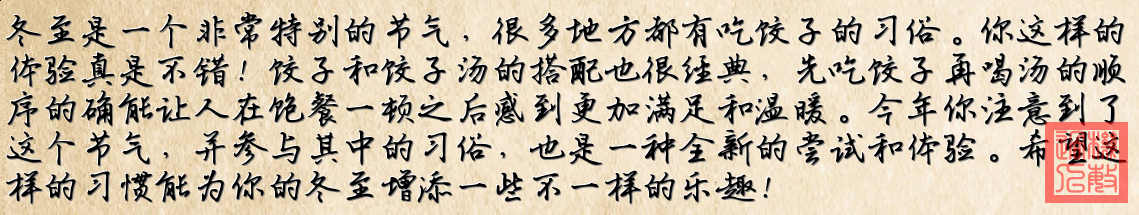 冬至是一个非常特别的节气，很多地方都有吃饺子的习俗。你这样的
体验真是不错！饺子和饺子汤的搭配也很经典，先吃饺子再喝汤的顺
序的确能让人在饱餐一顿之后感到更加满足和温暖。今年你注意到了
这个节气，并参与其中的习俗，也是一种全新的尝试和体验。希望这
样的习惯能为你的冬至增添一些不一样的乐趣！